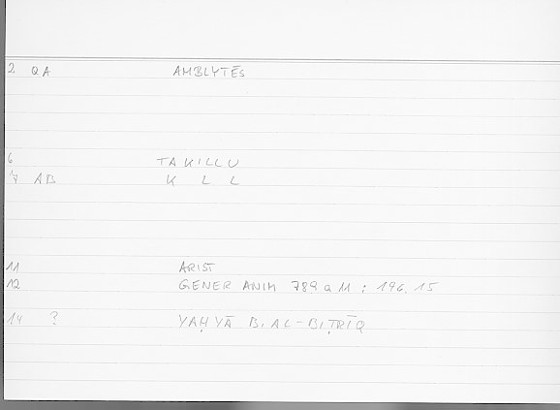 2 QA AMBLYTĒS
6 TAKILLU
7 AB K L L
11 ARIST
12 GENER ANIM 789 a 11 : 196.15
14 ? YAḤYĀ B. AL-BIṬRĪQ